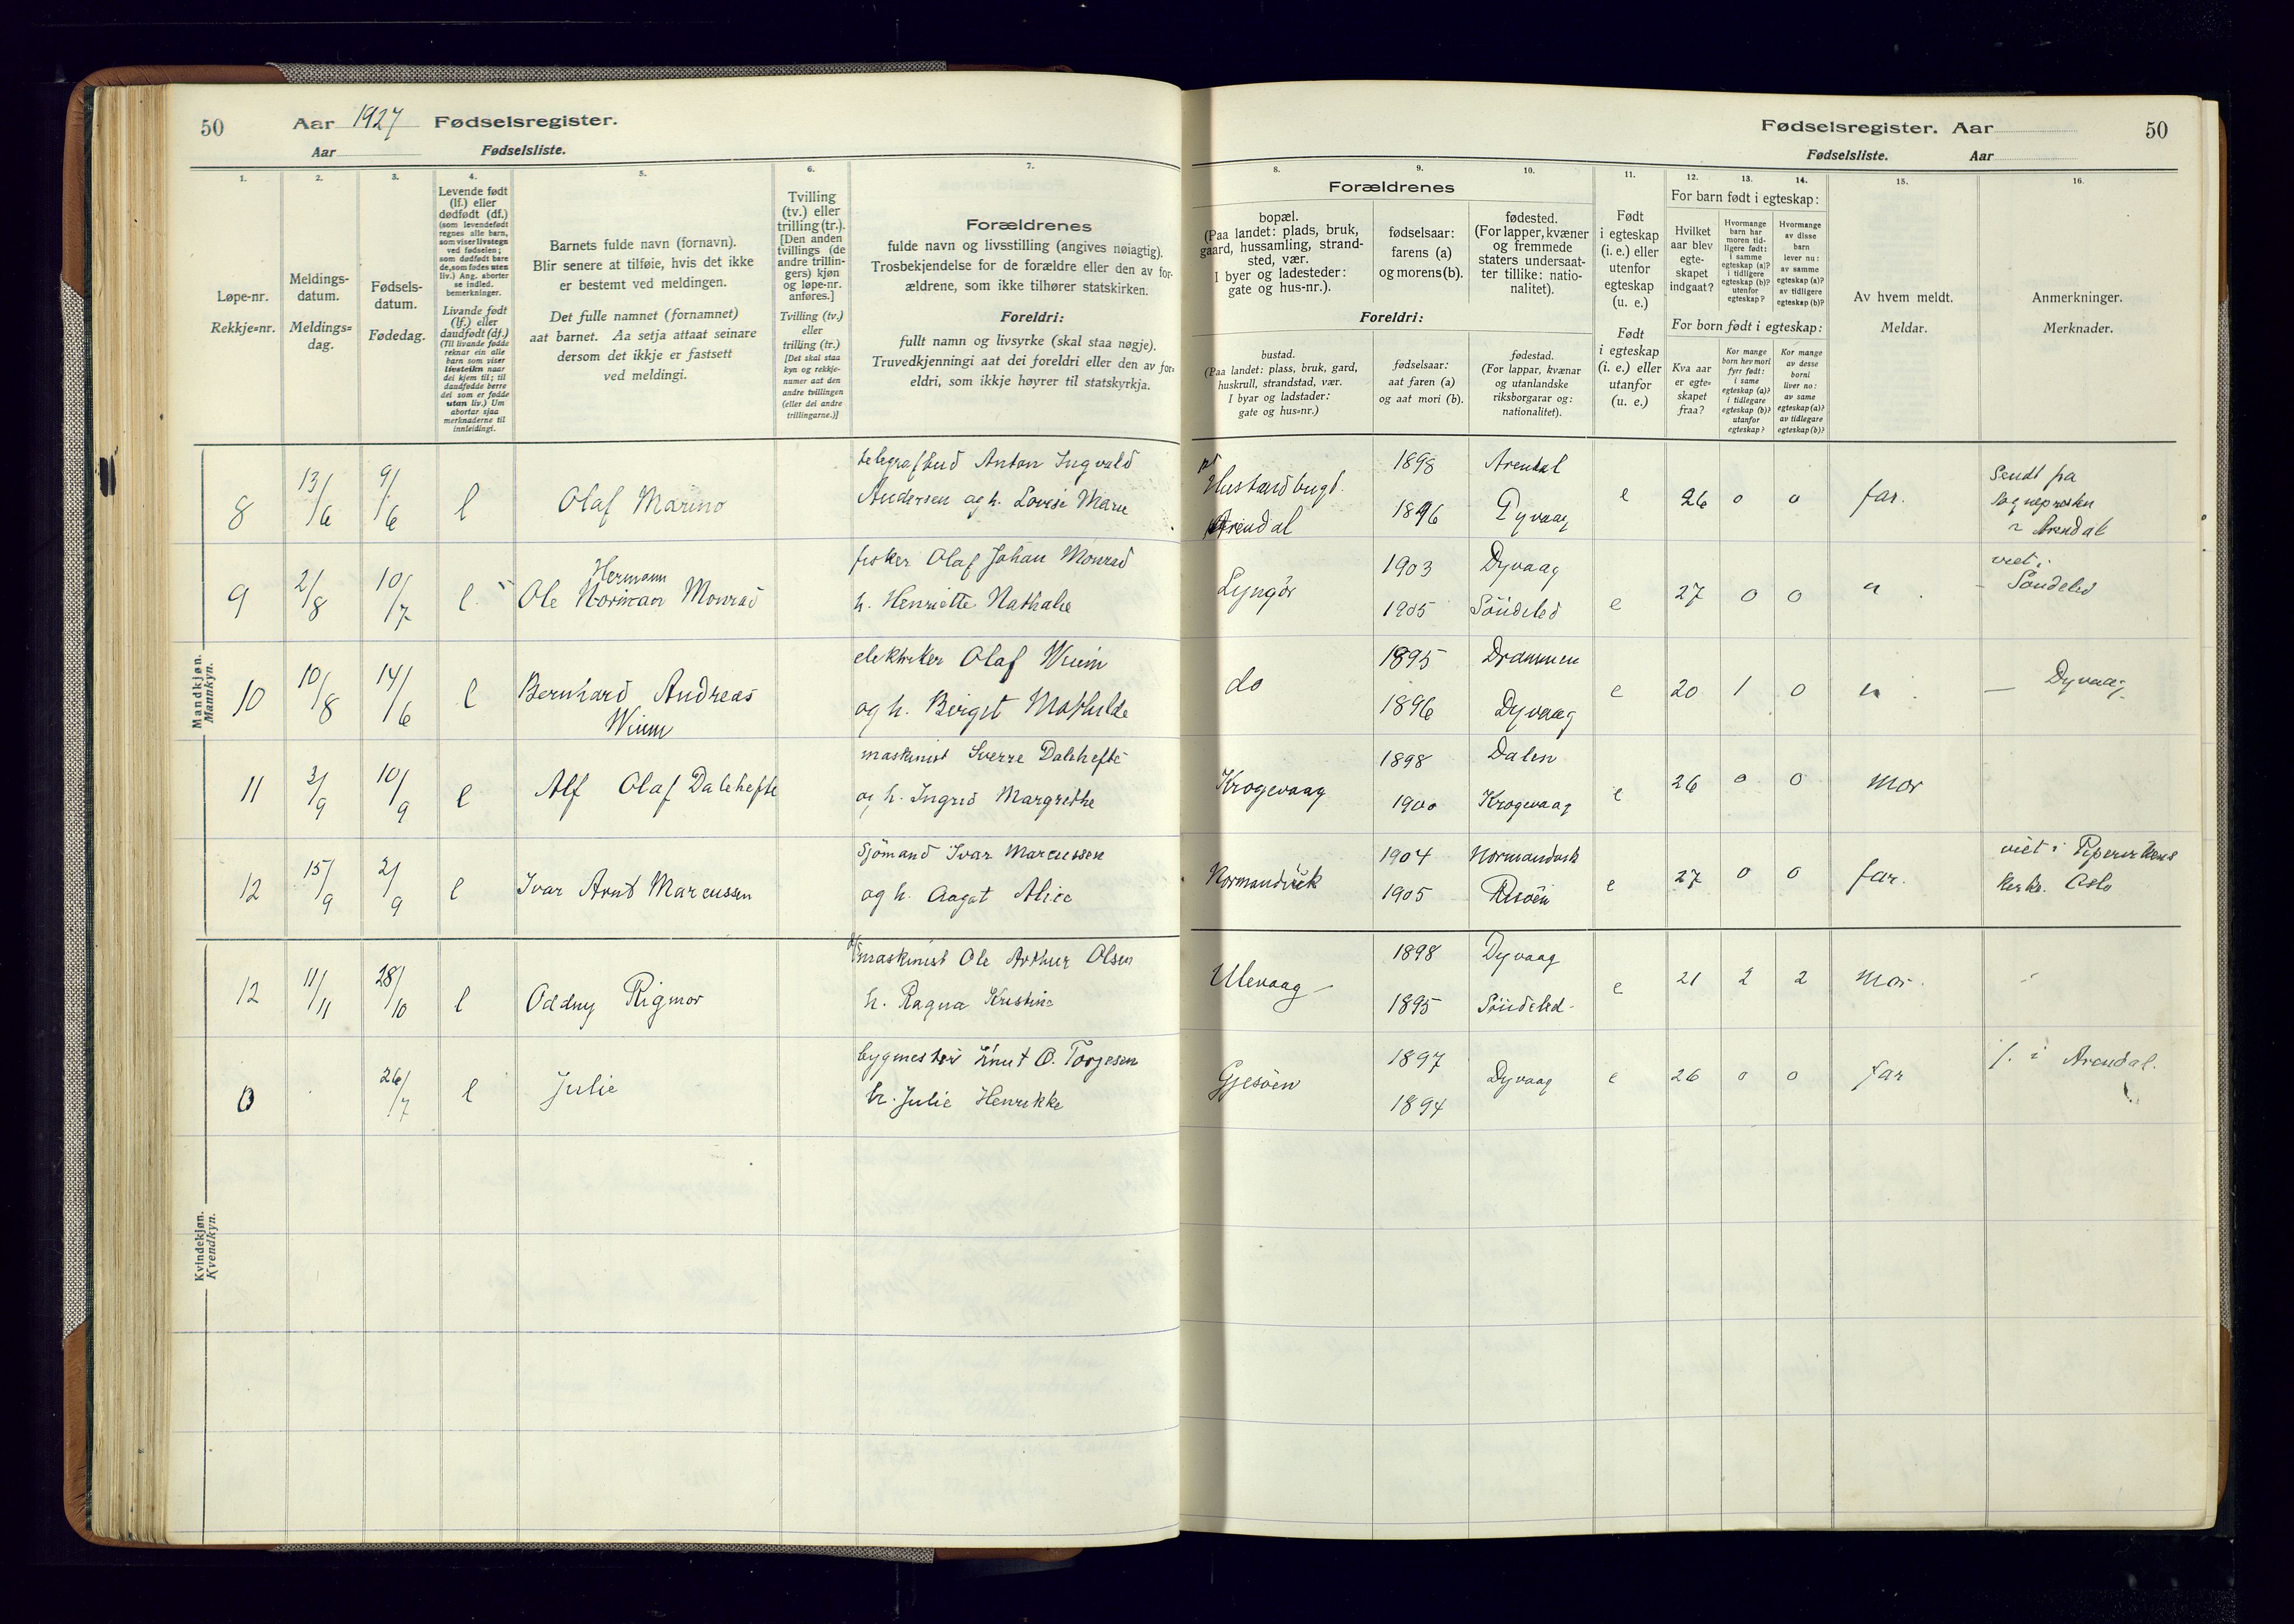 50
Aar 1927 Fødselsregister.
Aar Fødselsliste.
1.
2.
3.
4.
5.
6.
7.
Løpe-nr.
Rekkje=nr.
Meldings-
datum.
Meldings=
dag.
Fødsels-
datum.
Fødedag.
Levende født
(lf.) eller
dødfødt (df.)
(som levendefødt
regnes alle barn,
som viser livstegn
ved fødselen;
som dødfødt bare
de, som fødes uten
liv.) Ang. aborter
se indled.
bemerkninger.
Livande født
(lf.) eller
daudfødt (df.)
(Til livande fødde
reknar ein alle
barn som viser
livsteikn naar
dei kjem til; til
daudfødde berre
dei som er fødde
utan liv.) Um
abortar sjaa
merknaderne til
innleidingi.
Barnets fulde navn (fornavn).
Blir senere at tilføie, hvis det ikke
er bestemt ved meldingen.
Det fulle namnet (fornamnet)
aat barnet. Aa setja attaat seinare
dersom det ikkje er fastsett
ved meldingi.
Tvilling
(tv.) eller
trilling (tr.).
[Den anden
tvillings (de
andre trillin-
gers) kjøn
og løpe-nr.
anføres.]
Tvilling (tv.)
eller
trilling (tr.)
[Det skal staa
kyn og rekkje-
numer aat den
andre tvillingen
(eller dei andre
trillingarne.)]
Forældrenes
fulde navn og livsstilling (angives nøiagtig).
Trosbekjendelse for de forældre eller den av for-
ældrene, som ikke tilhører statskirken.
Foreldri:
fullt namn og livsyrke (skal staa nøgje).
Truvedkjenningi aat dei foreldri eller den av for-
eldri, som ikkje høyrer til statskyrkja.
Mandkjøn.
Mannkyn.
8 13/6 9/6 l Olaf Marino
telegrafbud Anton Ingvald
Andersen og h. Lovise Marie
9 2/8 10/7 l
Hermann
Ole Norman Monrad
fisker Olaf Johan Monrad
h. Henriette Nathalie
10 10/8 14/6 l Bernhard Andreas
Wiim
elektriker Olaf Wiim
og h. Birgit Mathilde
11 3/9 10/9 l Alf Olaf Dalehefte
maskinist Sverre Dalehefte
og h. Ingrid Margrethe
12 15/9 2/9 l Ivar Arnt Marcussen
Sjömand Ivar Marcussen
og h. Aagot Alice
Kvindekjøn.
Kvendkyn.
12 11/11 28/10 l Oddny Rigmor
maskinist Ole Arthur Olsen
h. Ragna Kristine
13 26/7 l Julie
bygmester Knut O. Torjesen
h. Julie Henrikke
Fødselsregister. Aar
50
Fødselsliste. Aar
8.
9.
10.
11.
12.
13.
14.
15.
16.
Forældrenes
bopæl.
(Paa landet: plads, bruk,
gaard, hussamling, strand-
sted, vær.
I byer og ladesteder:
gate og hus-nr.).
fødselsaar:
farens (a)
og morens (b).
fødested.
(For lapper, kvæner
og fremmede
staters undersaat-
ter tillike: natio-
nalitet).
Foreldri:
bustad.
(Paa landet: plass, bruk, gard,
huskrull, strandstad, vær.
I byar og ladstader:
gate og hus=nr.)
fødselsaar:
aat faren (a)
og aat mori (b).
fødestad.
(For lappar, kvænar
og utanlandske
riksborgarar og:
nationalitet).
Født
i egteskap
(i. e.) eller
utenfor
egteskap
(u. e.)
Født
i egteskap
(i. e.) eller
utanfor
(u. e.)
For barn født i egteskap:
Hvilket
aar blev
egte-
skapet
indgaat?
Hvormange
barn har
moren tid-
ligere født:
i samme
egteskap (a)?
i tidligere
egteskap (b)?
utenfor
egteskap?
Hvormange
av disse
barn
lever nu:
av samme
egteskap (a)?
av tidligere
egteskap (b)?
For born født i egteskap:
Kva aar
er egte=
skapet
fraa?
Kor mange
born hev mori
fyrr født:
i same
egteskap (a)?
i tidlegare
egteskap (b)?
utanfor
egteskap?
Kor mange
av desse
borni
liver no:
av same
egteskap (a)?
av tidlegare
egteskap (b)?
Av hvem meldt.
Meldar.
Anmerkninger.
Merknader.
Hustadbugt.
Arendal
1898 Arendal
1896 Dyvaag
e 26 0 0 far.
Sendt fra
Sognepresten
i Arendal
Lyngör
1903 Dyvaag
1905 Söndeled
e 27 0 0 "
viet i
Söndeled
do
1895 Drammen
1896 Dyvaag
e 20 1 0 "
— Dyvaag
Krogevaag
1898 Dalen
1900 Krogevaag
e 26 0 0 Mor
Normandvik
1904 Normandvik
1905 Risöen
e 27 0 0 far.
viet i Pipervikens
kirke. Oslo
Ulevaag
1898 Dyvaag
1895 Söndeled
e 21 2 2 Mor.
Gjesöen
1897
Dyvaag
1894
e 26 0 0 far
i Arendal.